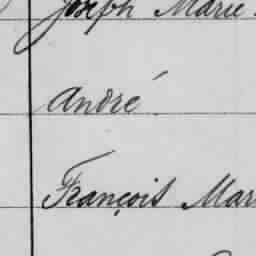 Joseph Marie
André
François Mar